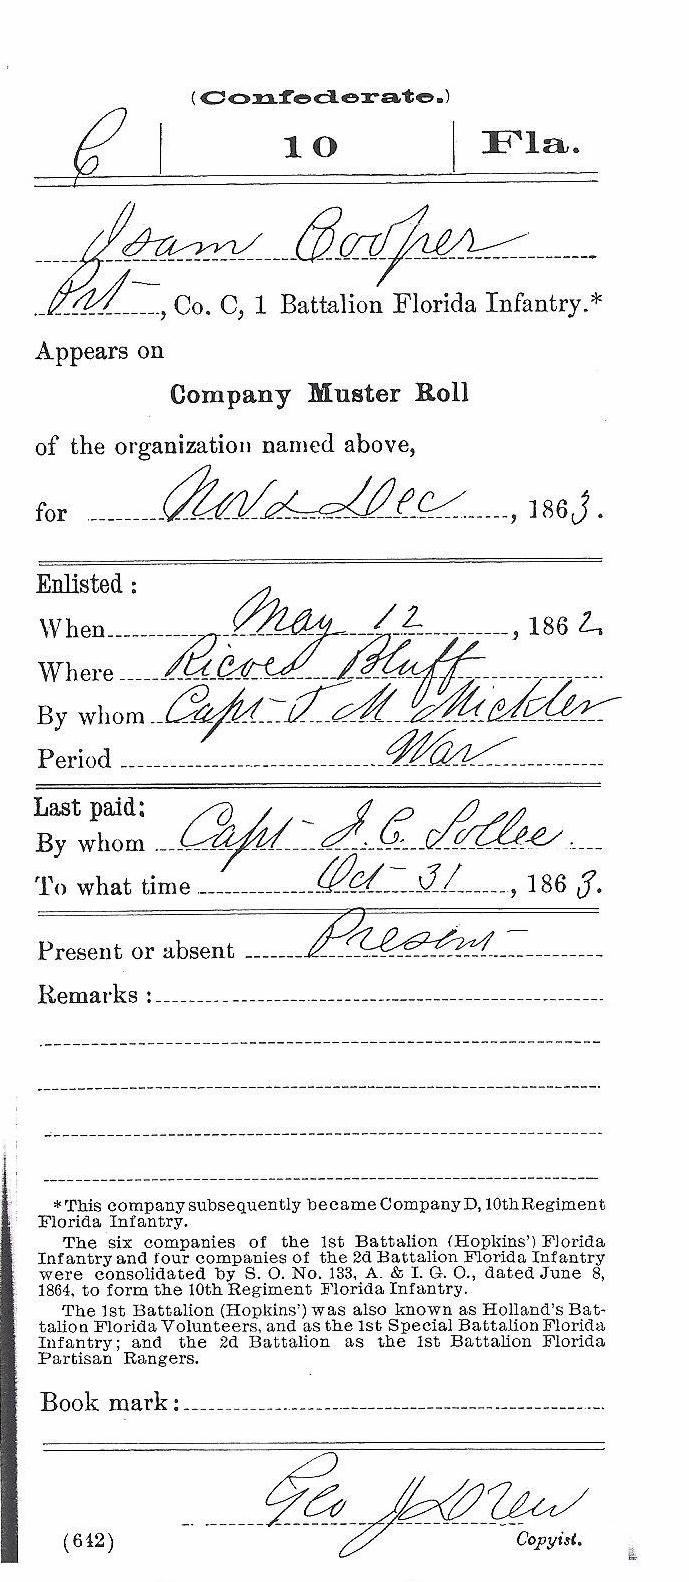 (Confederate.)
C | 10 | Fla.
Isam Cooper
Pvt, Co. C, 1 Battalion Florida Infantry.*
Appears on
Company Muster Roll
of the organization named above,
for Nov & Dec, 1863.
Enlisted:
When May 12, 1862.
Where Ricoes Bluff
By whom Capt J M Mickler
Period War
Last paid:
By whom Capt J. C. Sollee.
To what time Oct 31, 1863.
Present or absent Present
Remarks:
*This company subsequently became Company D, 10th Regiment
Florida Infantry.
The six companies of the 1st Battalion (Hopkins') Florida
Infantry and four companies of the 2d Battalion Florida Infantry
were consolidated by S. O. No. 133, A. & I. G. O., dated June 8,
1864, to form the 10th Regiment Florida Infantry.
The 1st Battalion (Hopkins') was also known as Holland's Bat-
talion Florida Volunteers, and as the 1st Special Battalion Florida
Infantry; and the 2d Battalion as the 1st Battalion Florida
Partisan Rangers.
Book mark:
Geo
(642) Copyist.